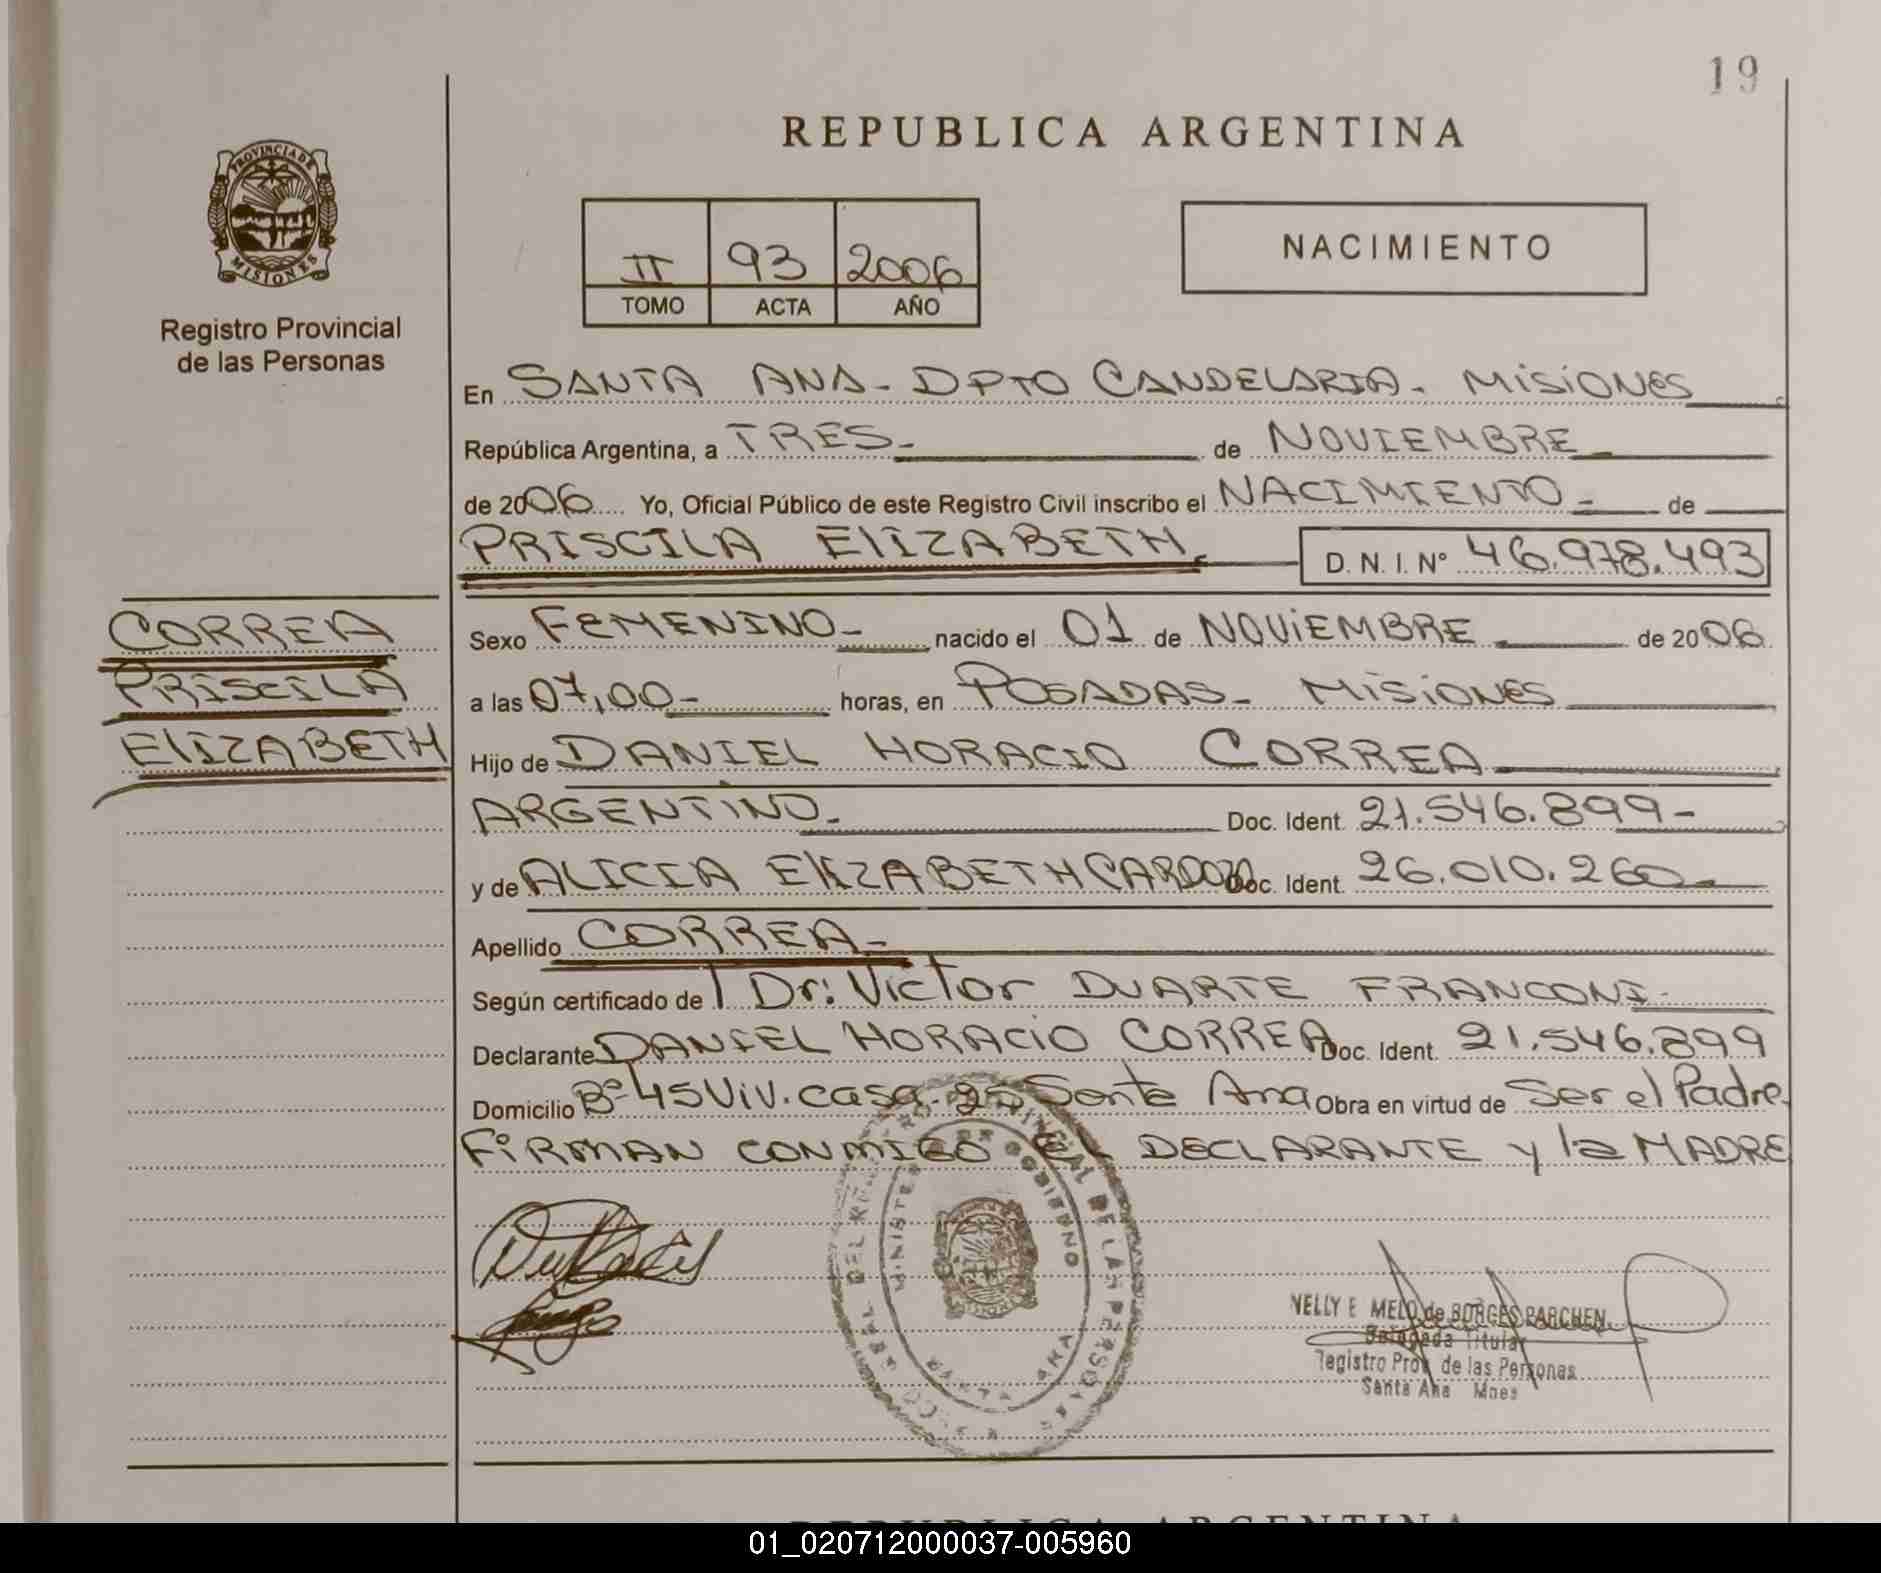 19
REPUBLICA ARGENTINA
PROVINCIA DE
MISIONES
Registro Provincial
de las Personas
II 93 2006
TOMO ACTA AÑO
NACIMIENTO
En SANTA ANA - DPTO CANDELARIA - MISIONES
República Argentina, a TRES - de NOVIEMBRE
de 2006 Yo, Oficial Público de este Registro Civil inscribo el NACIMIENTO - de
PRISCILA ElIZABETH D. N. I. Nº 46.978.493
CORREA
PRISCILA
ElIZABETH
Sexo FEMENINO - nacido el 01 de NOVIEMBRE de 2006
a las 07,00 - horas, en POSADAS - MISIONES
Hijo de DANIEL HORACIO CORREA
ARGENTINO - Doc. Ident. 21.546.899 -
y de ALICIA ElIZABETH CARDOZO Doc. Ident. 26.010.260
Apellido CORREA -
Según certificado de Dr: Victor DUARTE FRANCONI -
Declarante DANIEL HORACIO CORREA Doc. Ident. 21.546.899
Domicilio Bº 45 Viv. casa 25 Santa Ana Obra en virtud de Ser el Padre
FIRMAN CONMIGO EL DECLARANTE y la MADRE
MINISTERIO DE GOBIERNO
SANTA ANA
NELLY E MELO de BORGES PARCHEN
Delegada Titular
Registro Prov. de las Personas
Santa Ana Mnes
REPUBLICA ARGENTINA
01_020712000037-005960